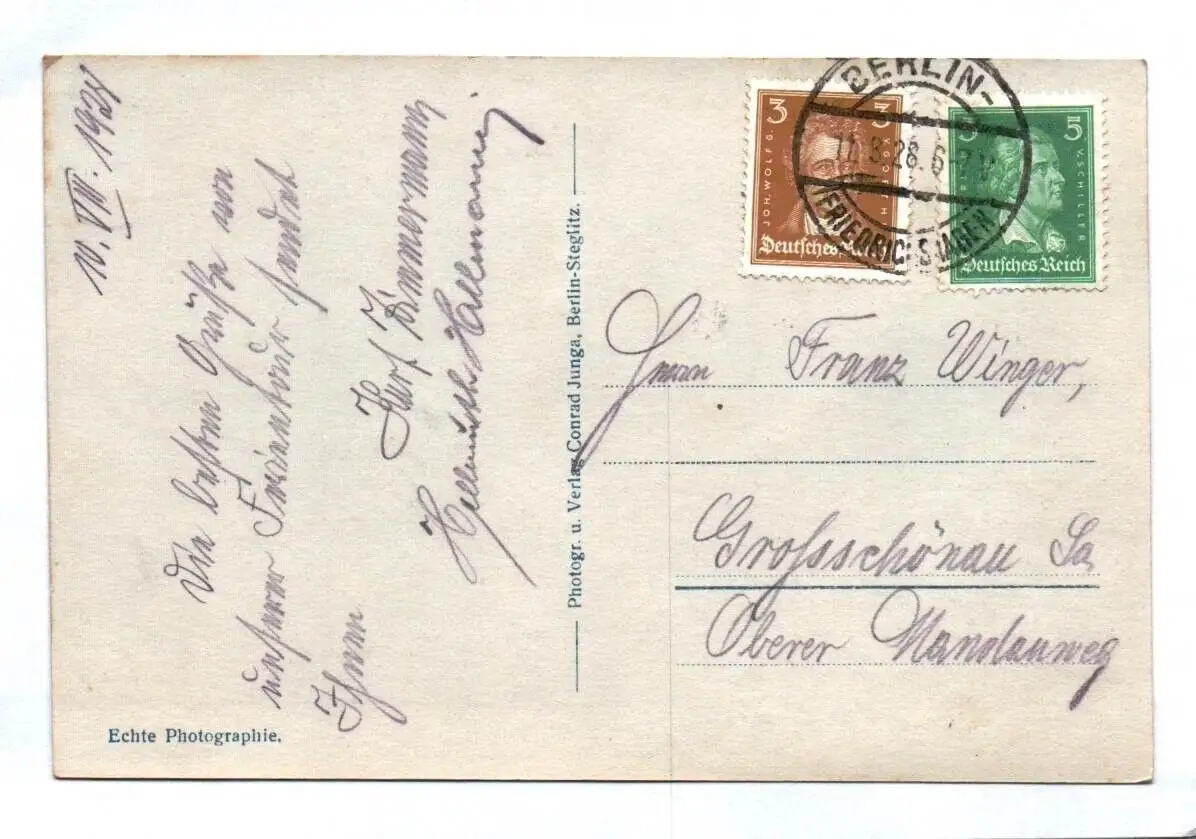 10. VIII. 1928
Die besten Grüße von
unserer Ferientour sendet
Ihnen
Kurt Zimmermann
Hellmuth
Echte Photographie.
Photogr. u. Verlag Conrad Junga, Berlin-Steglitz.
3 3
JOH. WOLFG. V. GOETHE
Deutsches Reich
5
V. SCHILLER
Deutsches Reich
BERLIN-
11.8.28. 6-7
FRIEDRICHSHAGEN
Herrn Franz Winger,
Grossschönau Sa
Oberer Mandauweg